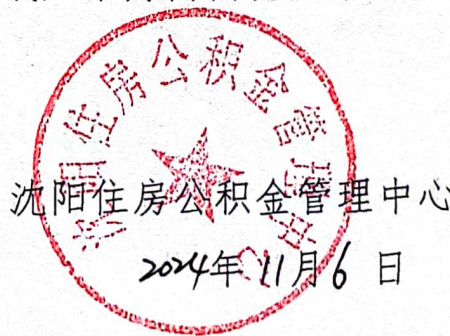 沈阳住房公积金管理中心
沈阳住房公积金管理中心
2024年11月6日